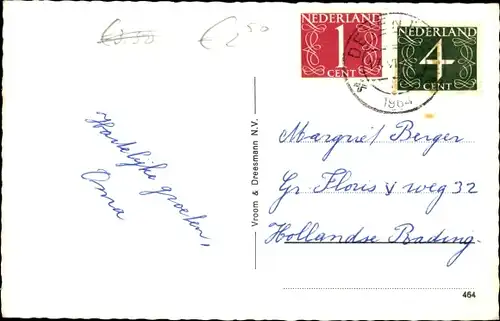 €3.50
€2.50
NEDERLAND
1
CENT
NEDERLAND
4
CENT
1964
Hartelijke groeten,
Oma
Vroom & Dreesmann N.V.
Margriet Berger
Gr Floris v weg 32
Hollandse Rading
464